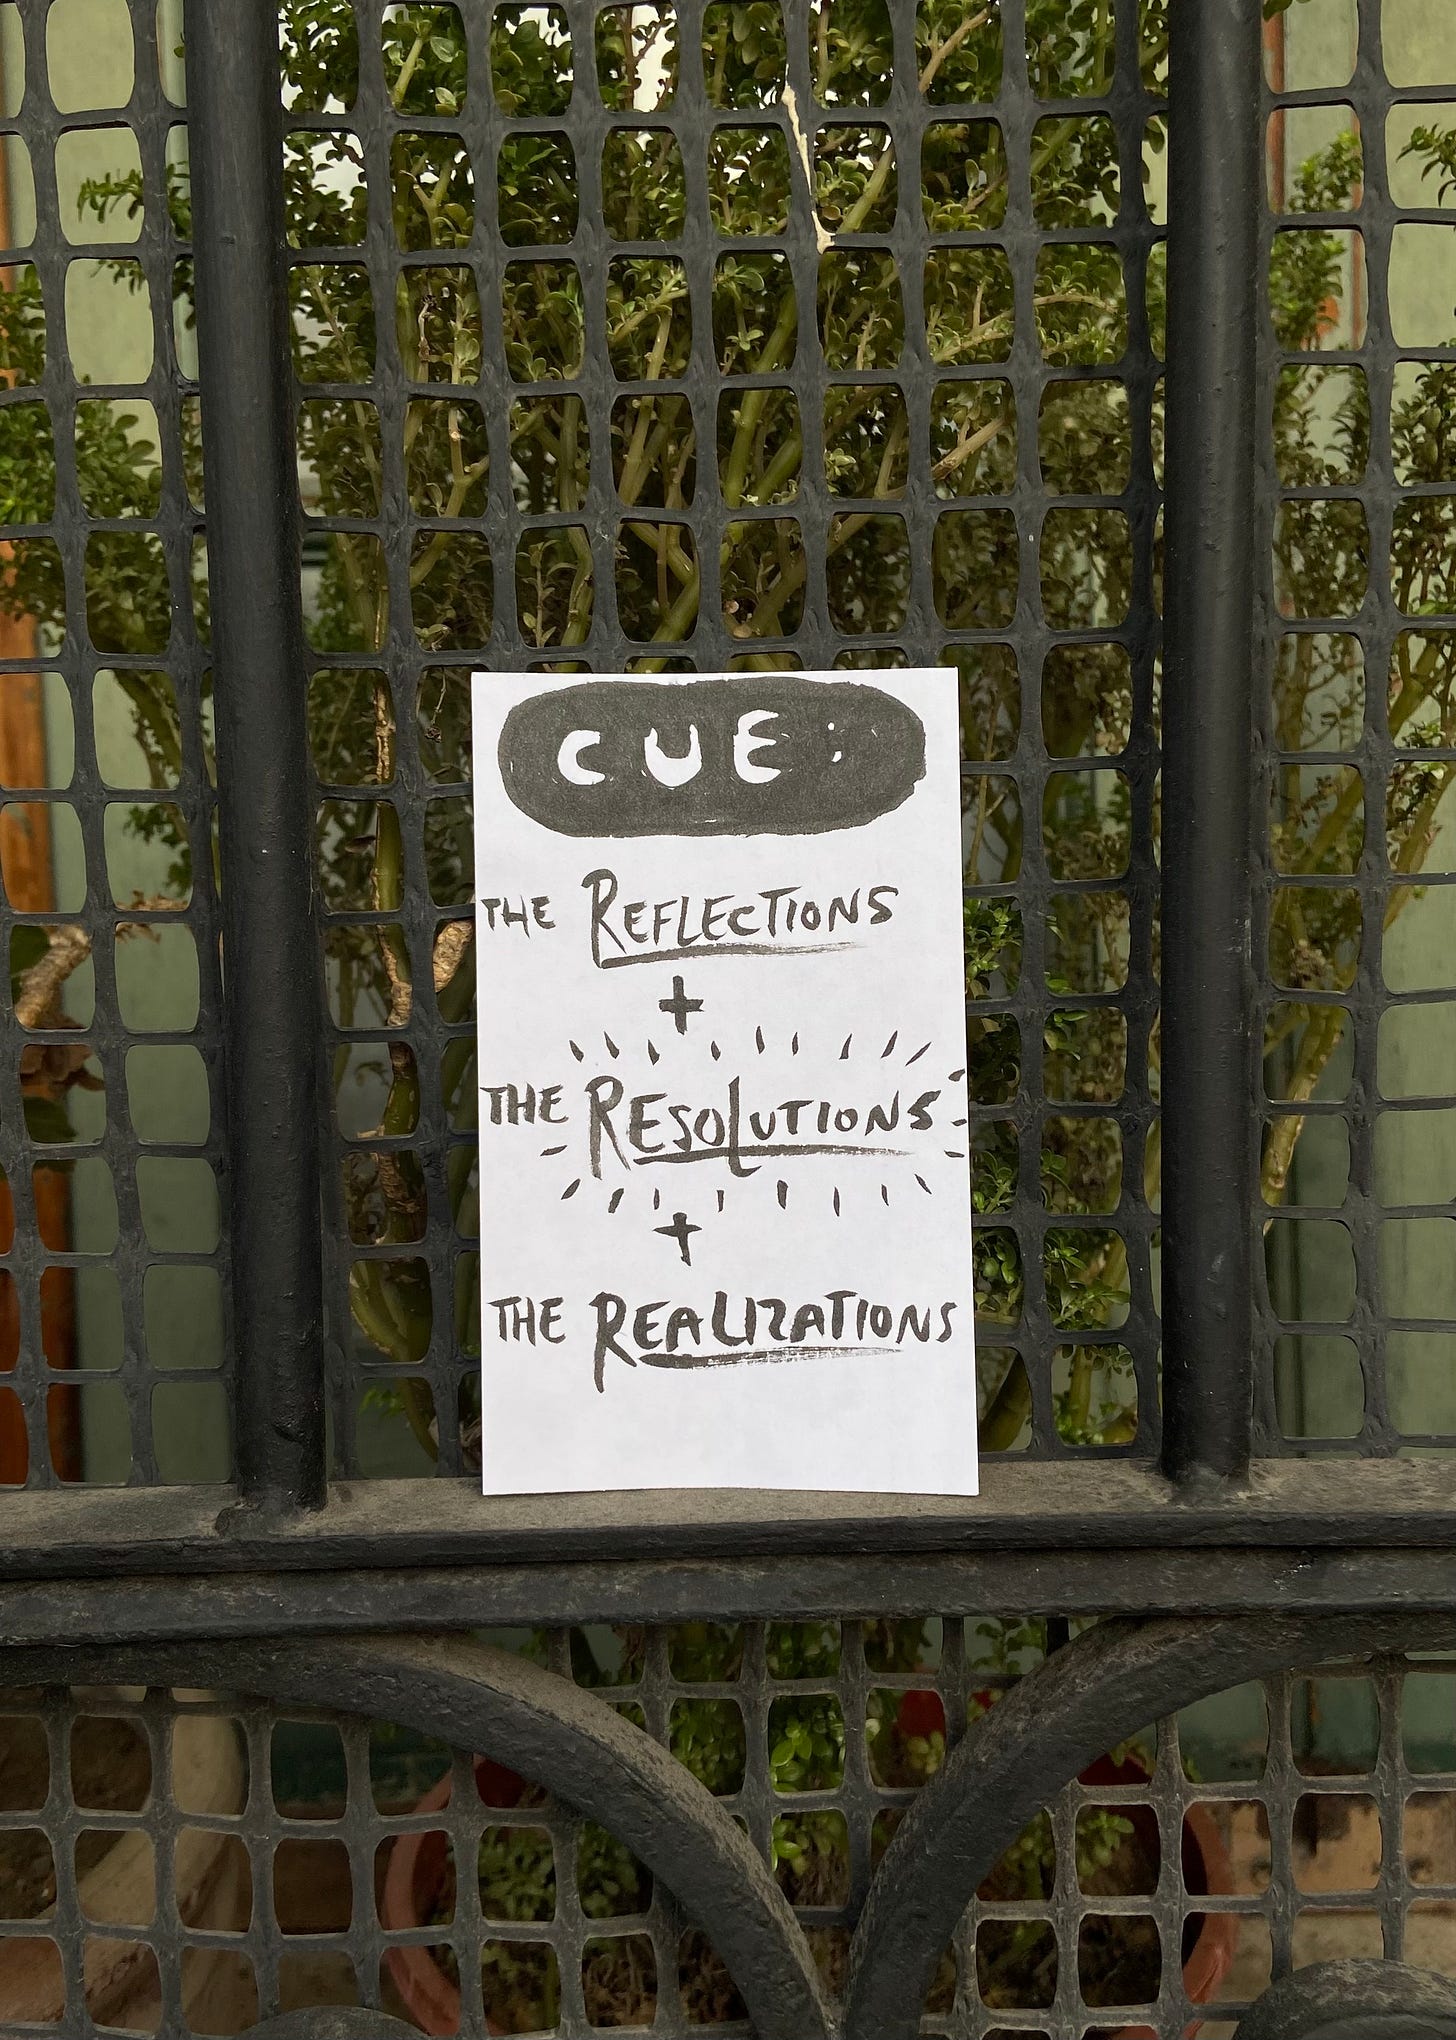 CUE:
THE REFLECTIONS
+
THE RESOLUTIONS
+
THE REALIZATIONS